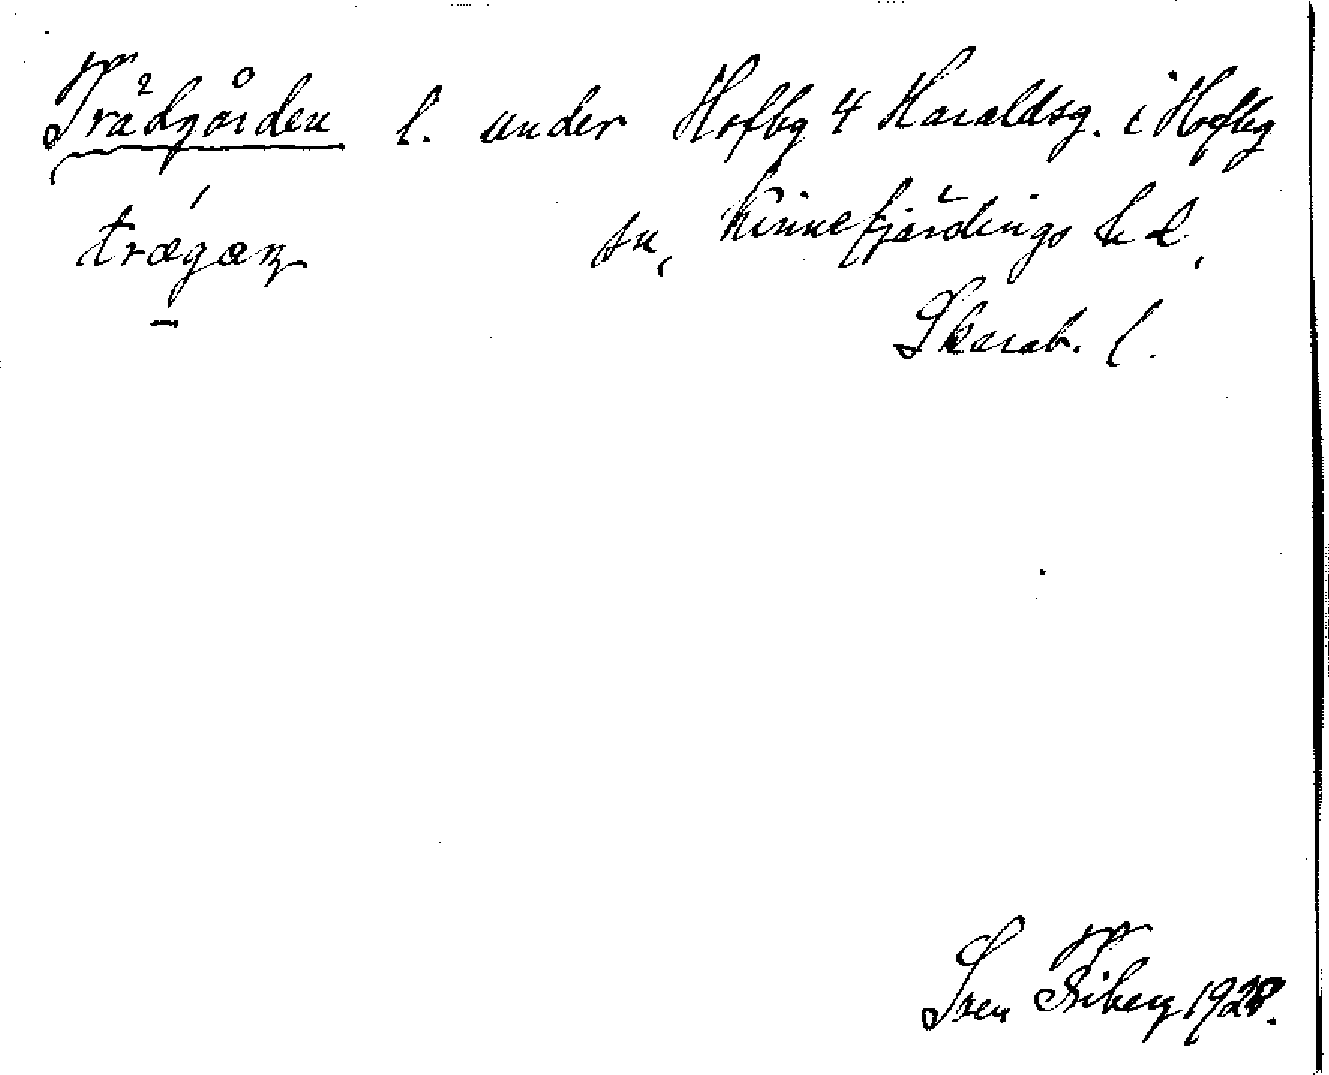 Trädgården l. under Hofby 4 Haraldsg. i Hofby
trægæɳ sn, Kinnefjärdings hd,
Skarab. l.
Sven Friberg 1928.